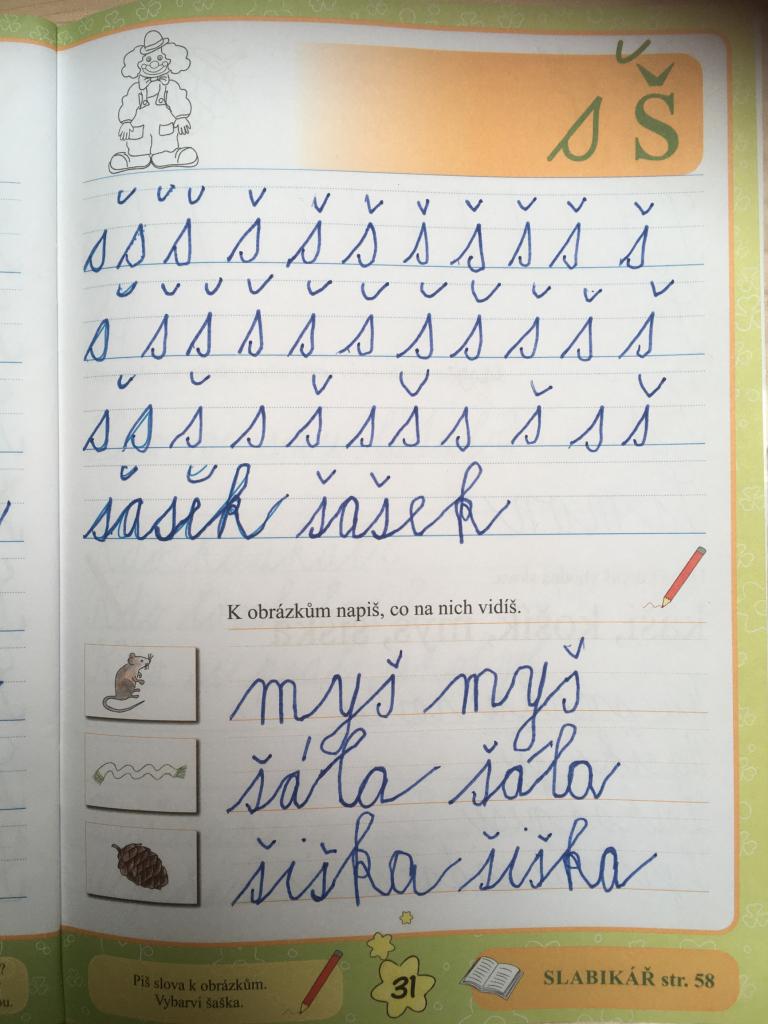 š Š
š š š š š š š š š š š
š š š š š š š š š š š
š s š s š s š s š s š
šašek šašek
K obrázkům napiš, co na nich vidíš.
myš myš
šála šála
šiška šiška
Piš slova k obrázkům.
Vybarvi šaška.
31
SLABIKÁŘ str. 58